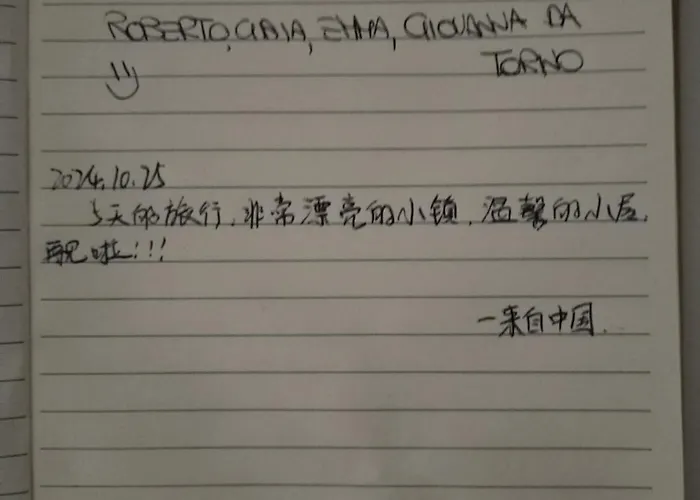 ROBERTO, GAIA, EMMA, GIOVANNA DA
TORNO
2024.10.25
5天的旅行,非常漂亮的小镇,温馨的小屋,
再见啦!!!
一来自中国.